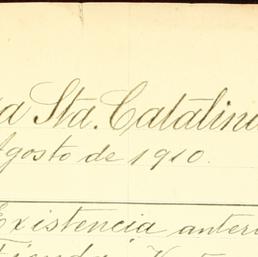 a Sta. Catalin
Agosto de 1910.
Existencia anteri
Tienda